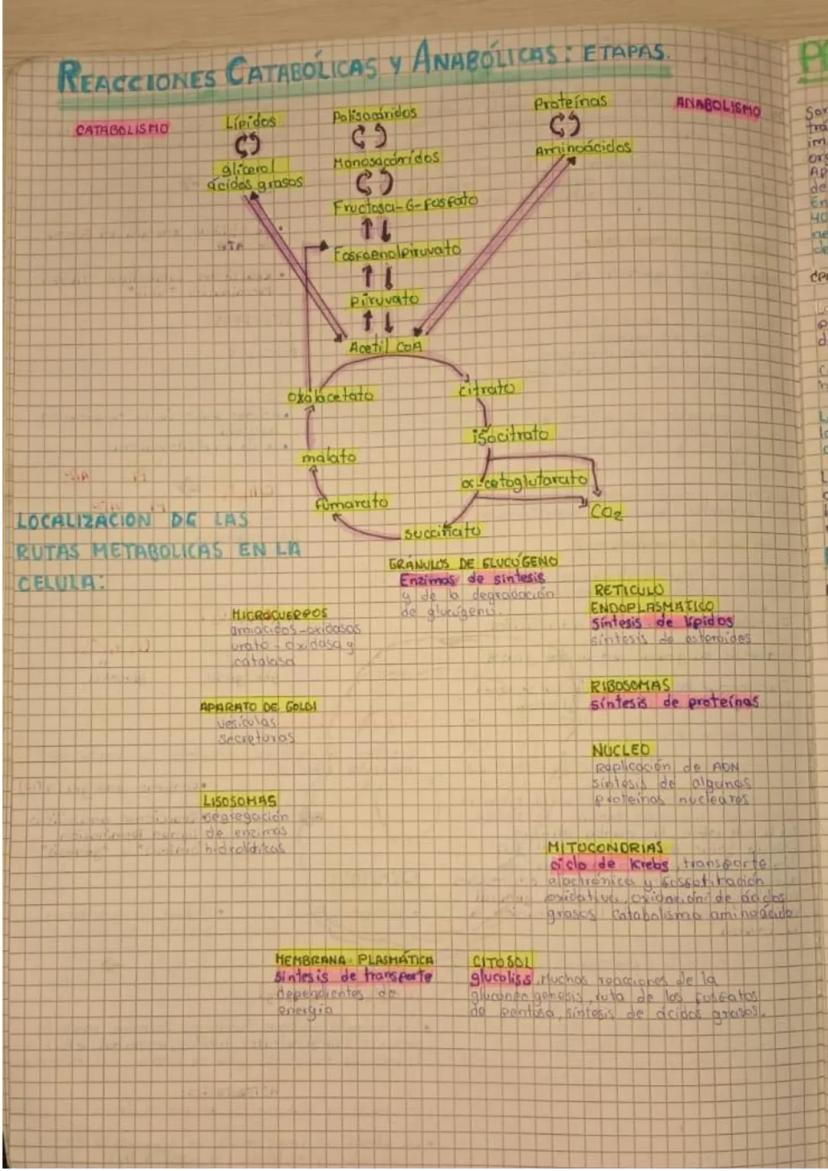 REACCIONES CATABÓLICAS Y ANABÓLICAS: ETAPAS.
CATABOLISMO
ANABOLISMO
Lípidos
glicerol
ácidos grasos
Polisacáridos
Monosacáridos
Fructosa-6-Fosfato
Fosfoenolpiruvato
Piruvato
Acetil CoA
Proteínas
Aminoácidos
oxalacetato
citrato
isocitrato
α-cetoglutarato
CO2
succinato
fumarato
malato
LOCALIZACIÓN DE LAS
RUTAS METABOLICAS EN LA
CELULA:
GRÁNULOS DE GLUCÓGENO
Enzimas de síntesis
y de la degradación
de glucógeno.
MICROCUERPOS
catalasa
RETICULO
ENDOPLASMATICO
síntesis de lípidos
síntesis de esteroides
APARATO DE GOLGI
vesículas
secretoras
RIBOSOMAS
síntesis de proteínas
NÚCLEO
Replicación de ADN
síntesis de algunas
proteínas nucleares
LISOSOMAS
segregación
de enzimas
hidrolíticas
MITOCONDRIAS
ciclo de Krebs, transporte
electrónico y
oxidativa, oxidación de ácidos
grasos catabolismo aminoácido
MEMBRANA PLASMÁTICA
síntesis de transporte
dependientes de
energía
CITOSOL
glucolisis, Muchas reacciones de la
ruta de los fosfatos
de pentosa, síntesis de ácidos grasos.